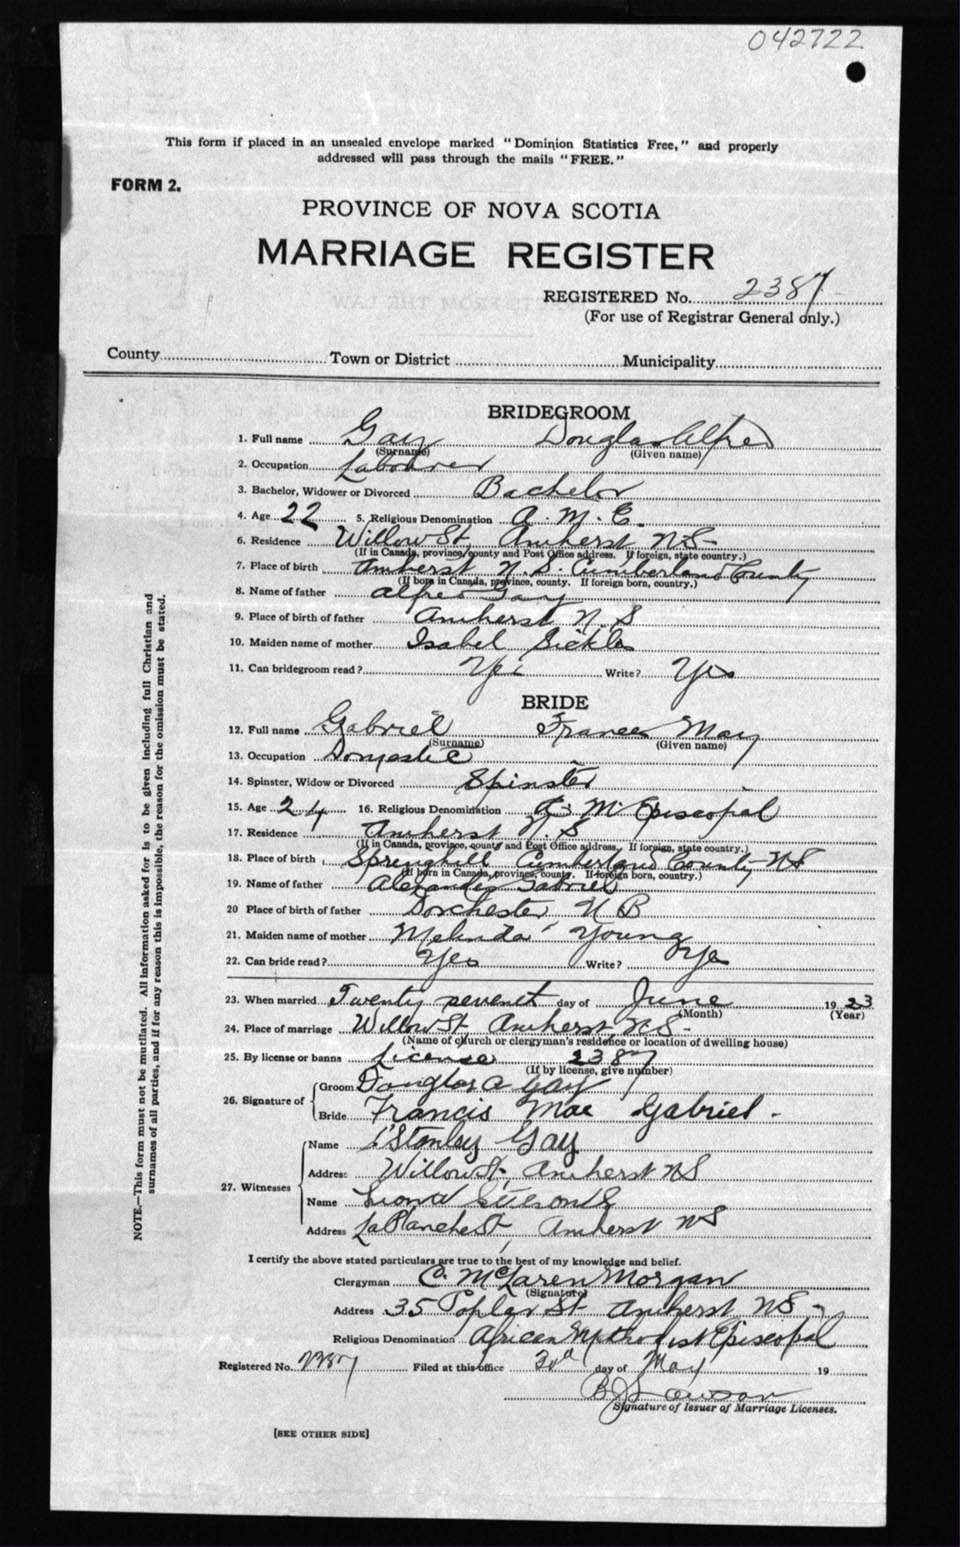 042722
This form if placed in an unsealed envelope marked "Dominion Statistics Free," and properly
addressed will pass through the mails "FREE."
FORM 2.
PROVINCE OF NOVA SCOTIA
MARRIAGE REGISTER
REGISTERED No. 2387
(For use of Registrar General only.)
County Town or District Municipality
BRIDEGROOM
1. Full name Gay Douglas Alfred
(Surname) (Given name)
2. Occupation Labourer
3. Bachelor, Widower or Divorced Bachelor
4. Age 22 5. Religious Denomination A. M. E.
6. Residence Willow St, Amherst N.S-
(If in Canada, province, county and Post Office address. If foreign, state country.)
7. Place of birth Amherst N.S. Cumberland County
(If born in Canada, province, county. If foreign born, country.)
8. Name of father Alfred Gay
9. Place of birth of father Amherst N.S
10. Maiden name of mother Isabel Sickles
11. Can bridegroom read? Yes Write? Yes
BRIDE
12. Full name Gabriel Frances May
(Surname) (Given name)
13. Occupation Domestic
14. Spinster, Widow or Divorced Spinster
15. Age 24 16. Religious Denomination M. Episcopal
17. Residence Amherst N.S
(If in Canada, province, county and Post Office address, If foreign, state country.)
18. Place of birth Springhill Cumberland County NS
(If born in Canada, province, county. If foreign born, country.)
19. Name of father Alexander Gabriel
20 Place of birth of father Dorchester N B
21. Maiden name of mother Melinda Young
22. Can bride read? Yes Write? Yes
23. When married Twenty sevent day of June 1923
(Month) (Year)
24. Place of marriage Willow St, Amherst NS-
(Name of church or clergyman's residence or location of dwelling house)
25. By license or banns License 2387
(If by license, give number)
26. Signature of
Groom Douglas A Gay
Bride Francis Mae Gabriel-
27. Witnesses
Name Stanley Gay
Address Willow St, Amherst NS
Name
Address LaPlanche St, Amherst NS
I certify the above stated particulars are true to the best of my knowledge and belief.
Clergyman C. McLaren Morgan
(Signature)
Address 35 Poplar St- Amherst NS-
Religious Denomination African Methodist Episcopal
Registered No. 2387 Filed at this office day of May 19
B J Lawson
Signature of Issuer of Marriage Licenses.
[SEE OTHER SIDE]
NOTE.—This form must not be mutilated. All information asked for is to be given including full Christian and
surnames of all parties, and if for any reason this is impossible, the reason for the omission must be stated.